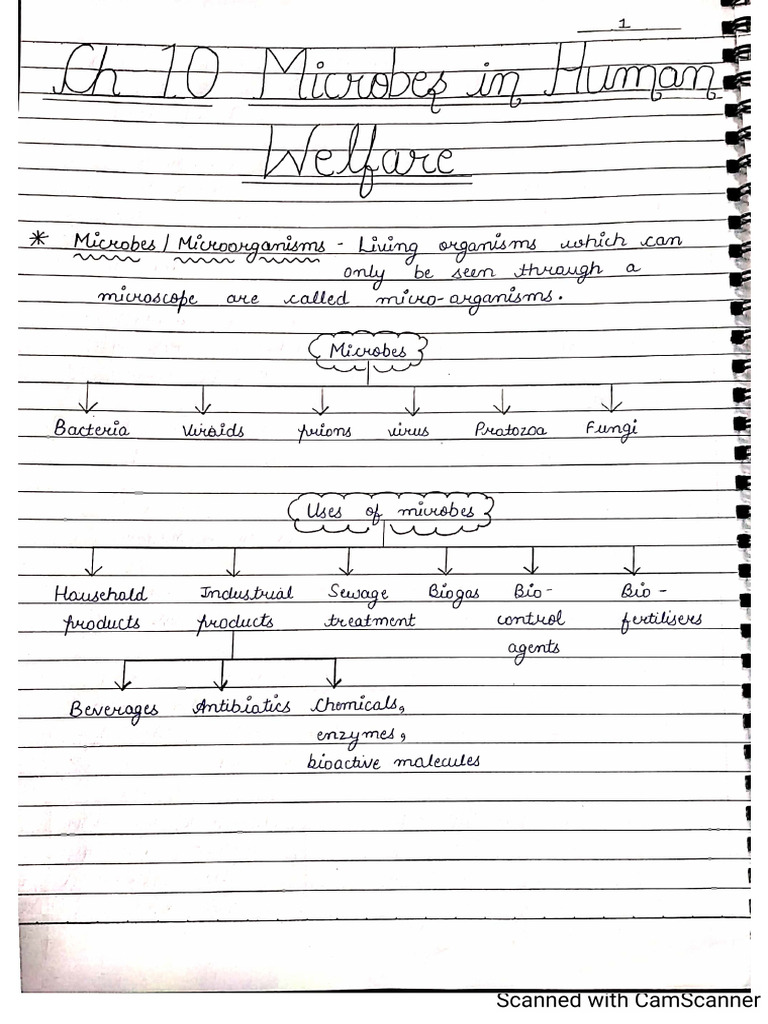 1
Ch 10 Microbes in Human
Welfare
* Microbes / Microorganisms - Living organisms which can
only be seen through a
microscope are called micro-organisms.
Microbes
Bacteria Viroids prions virus Protozoa Fungi
Uses of microbes
Household Industrial Sewage Biogas Bio- Bio-
products products treatment control fertilisers
agents
Beverages Antibiotics Chemicals,
enzymes,
bioactive molecules
Scanned with CamScanner